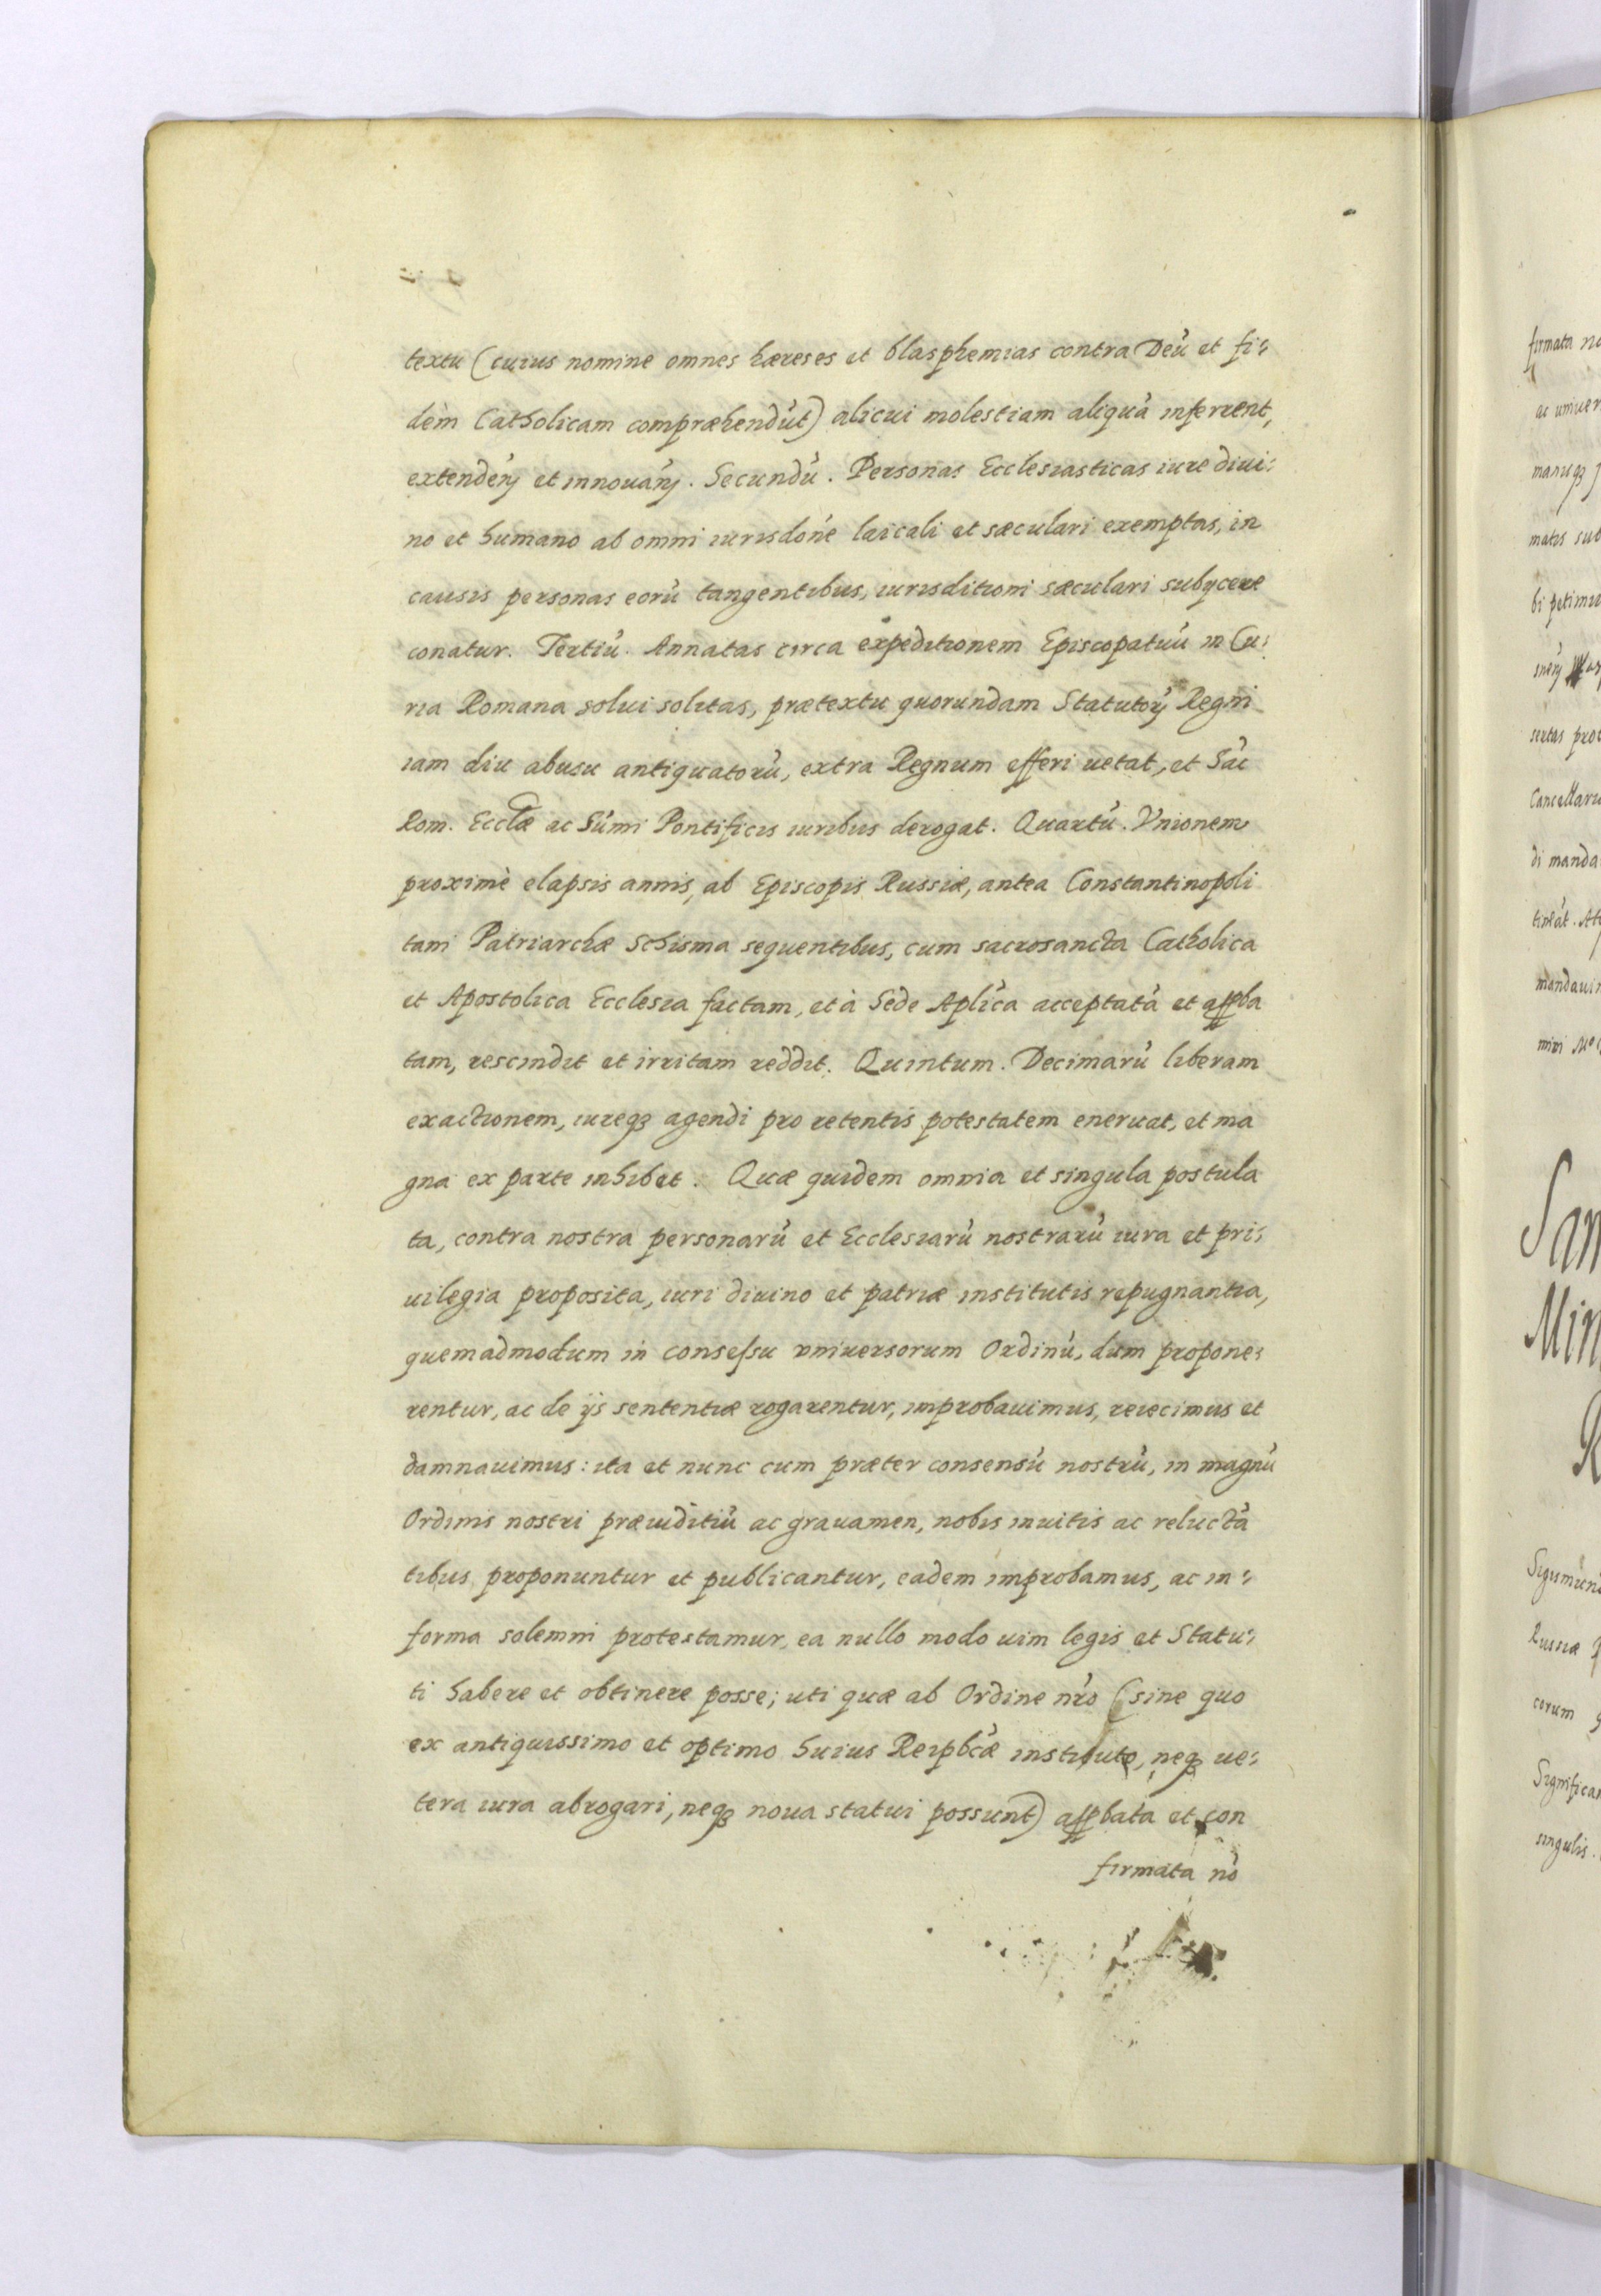 textu (cuius nomine omnes hæreses et blasphemias contra Deū et fi:
dem Catholicam compræhendūt) alicui molestiam aliquā inferrent,
extendēŋ et innouāŋ. Secundū. Personas Ecclesiasticas iure diui:
no et humano ab omni iurisdōne laicali et sæculari exemptas, in
causis personas eorū tangentibus, iurisditioni sæculari subycere
conatur. Tertiū. Annatas circa expeditionem Episcopatuū in Cu:
ria Romana solui solitas, prætextu quorundam Statutoŋ Regni
iam diu abusu antiquatorū, extra Regnum efferi uetat, et Sāc
Rom. Eccłæ ac Sūmi Pontificis iuribus derogat. Quartū. Vnionem
proximè elapsis annis, ab Episcopis Russiæ, antea Constantinopoli
tani Patriarchæ Schisma sequentibus, cum sacrosancta Catholica
et Apostolica Ecclesia factam, et à Sede Aplīca acceptatā et appba
tam, rescindit et irritam reddit. Quintum. Decimarū liberam
exactionem, iureqꝫ agendi pro retentis potestatem eneruat, et ma
gna ex parte inhibet. Quæ quidem omnia et singula postula
ta, contra nostra personarū et Ecclesiarū nostrarū iura et pri:
uilegia proposita, iuri diuino et patriæ institutis repugnantia,
quemadmodum in consessu vniuersorum Ordinū, dum propone:
rentur, ac de ijs sententiæ rogarentur, improbauimus, reiecimus et
damnauimus: ita et nunc cum præter consensū nostrū, in magnū
Ordinis nostri præiuditiū ac grauamen, nobis inuitis ac reluctā
tibus proponuntur et publicantur, eadem improbamus, ac in:
forma solemni protestamur, ea nullo modo uim legis et Statu:
ti habere et obtinere posse; uti quæ ab Ordine nr̄o (sine quo
ex antiquissimo et optimo huius Reipbcæ instituto, neqꝫ ue:
tera iura abrogari, neqꝫ noua statui possunt) appbata et con
firmata nō
firmata
bi
di manda
Cancellarii
San
Min
R
Russiæ
corum
Significa
singulis.